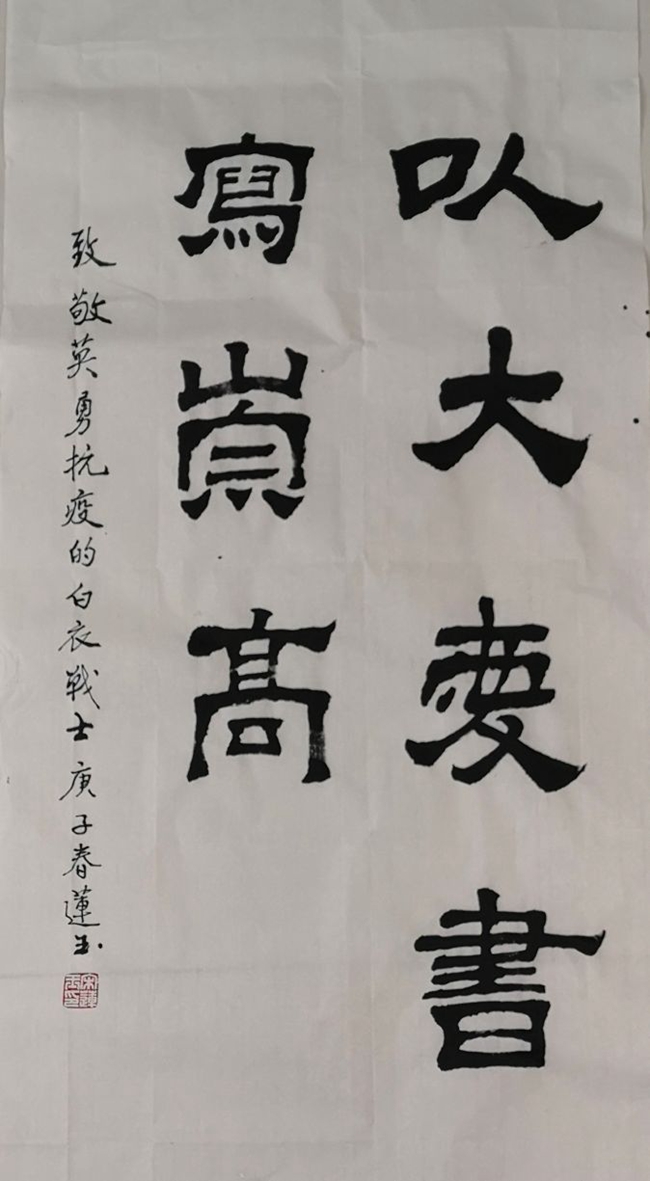 以大愛書
寫崇高
致敬英勇抗疫的白衣战士庚子春蓮玉